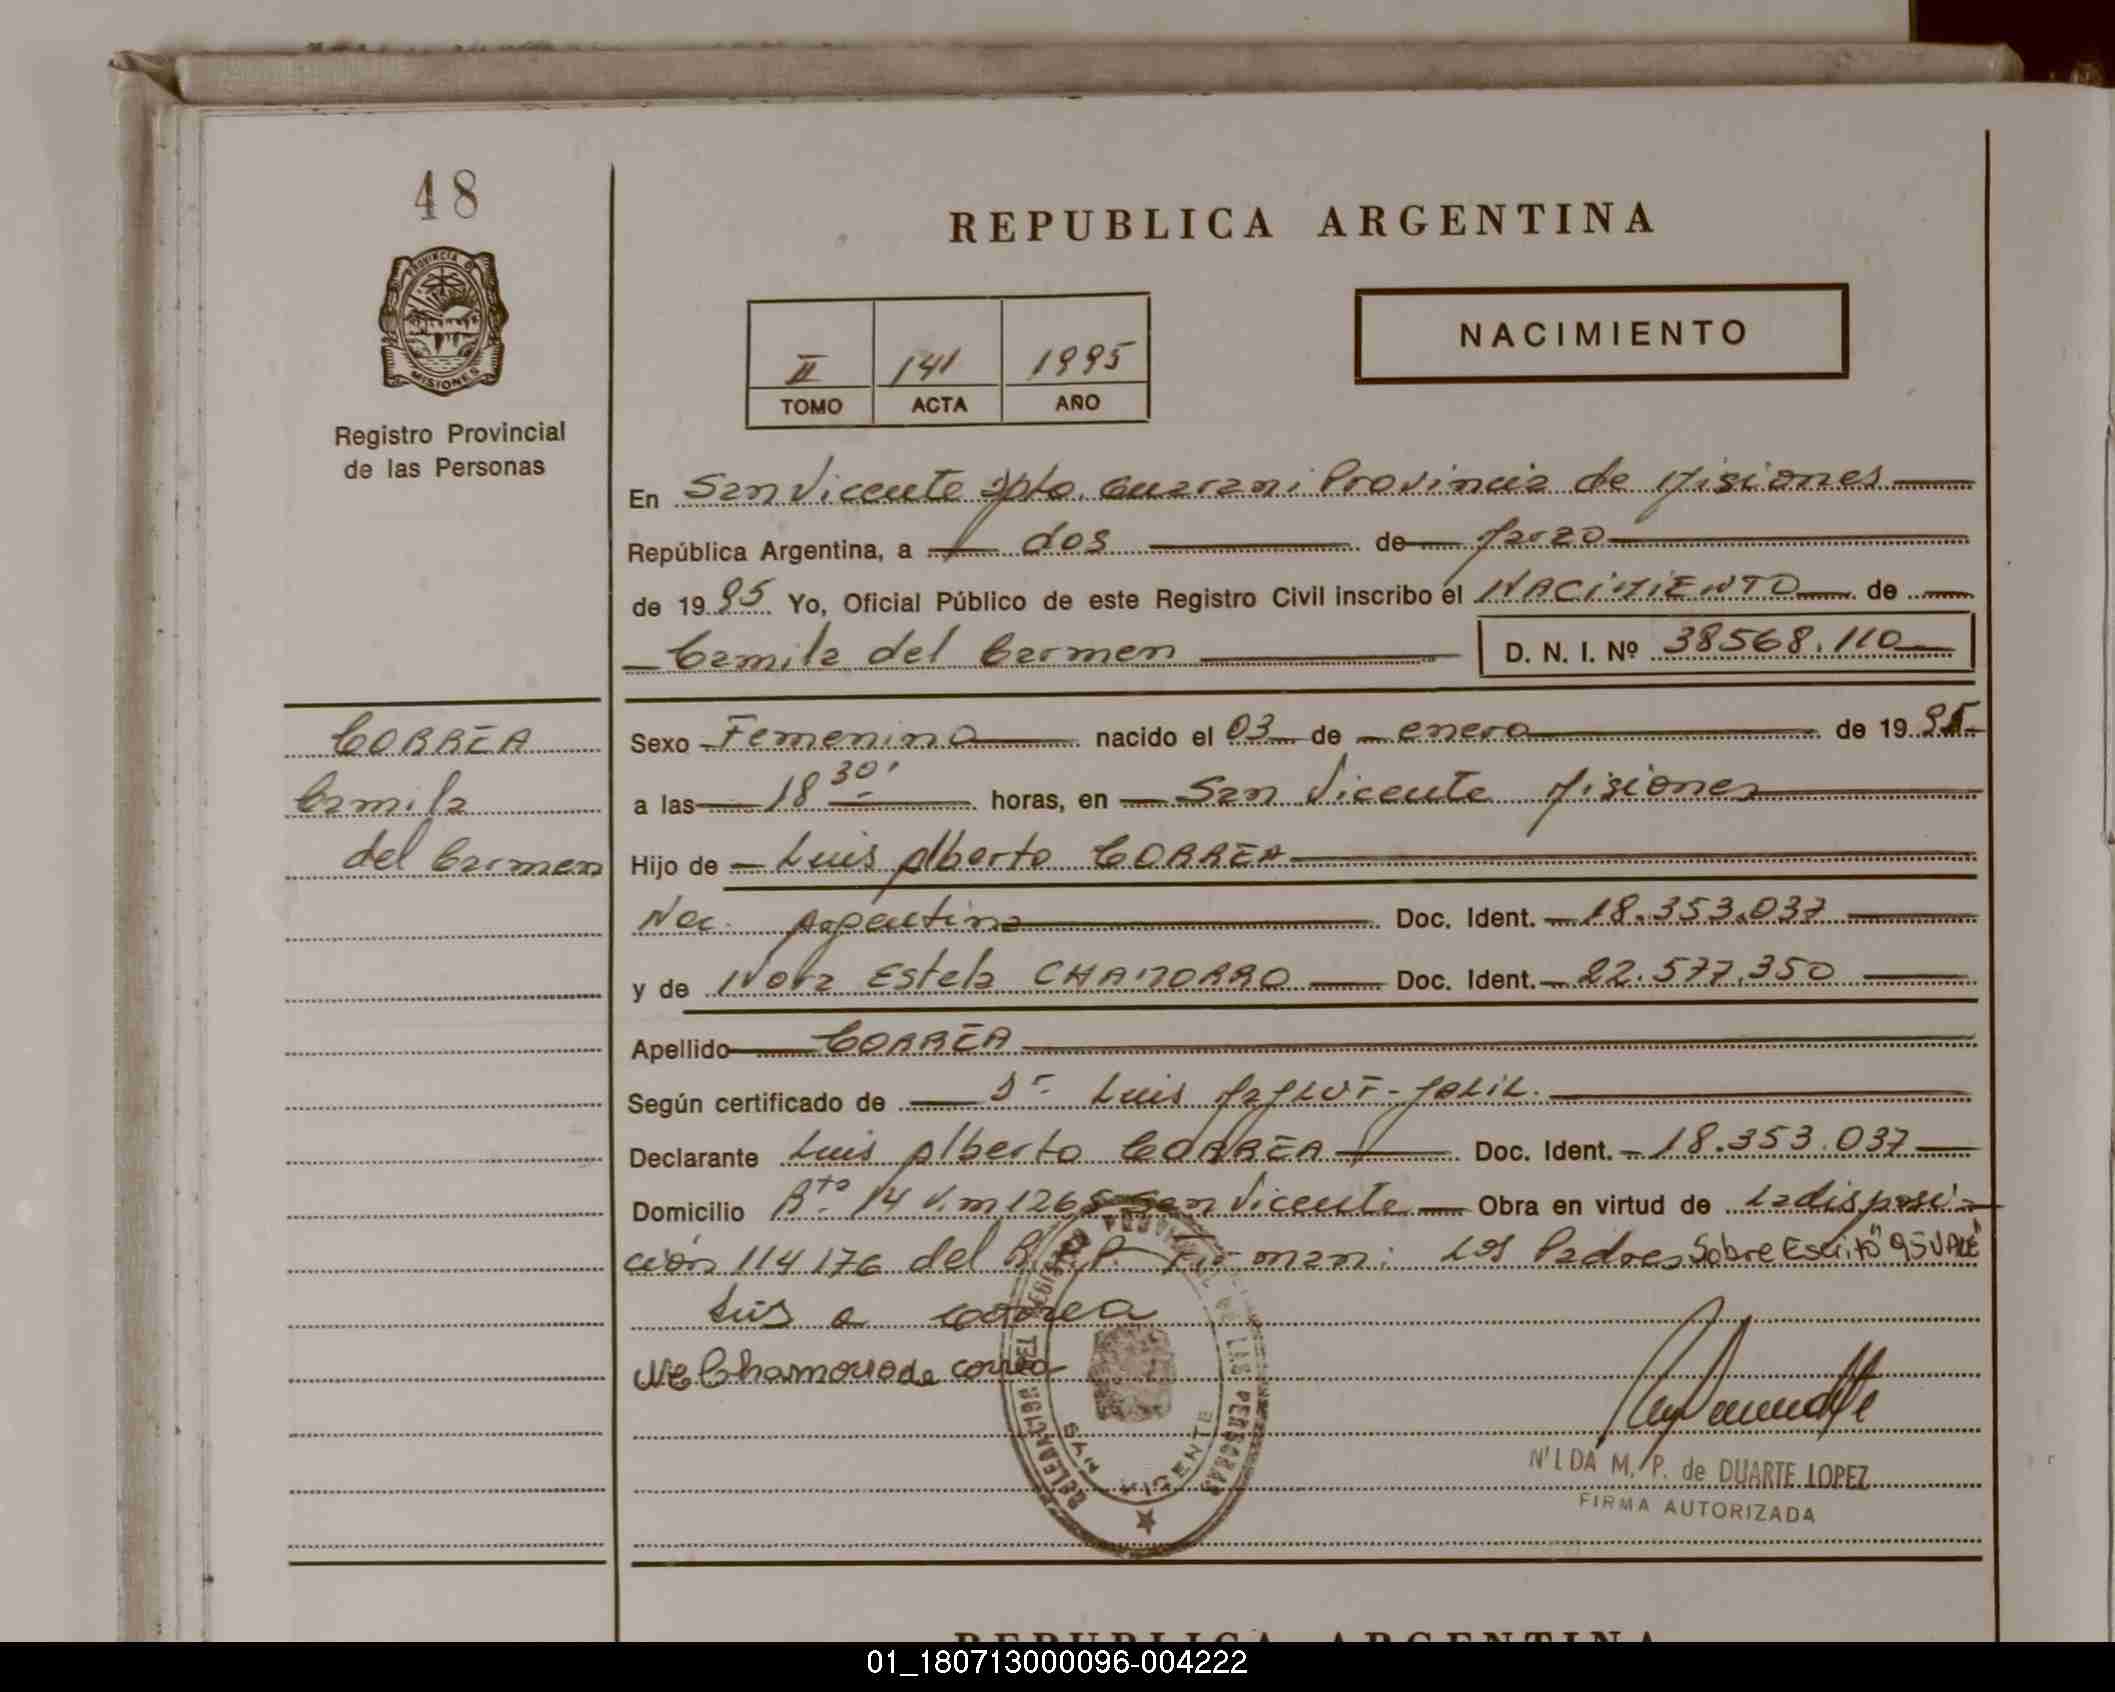 48
REPUBLICA ARGENTINA
PROVINCIA D
MISIONES
Registro Provincial
de las Personas
NACIMIENTO
II 141 1995
TOMO ACTA AÑO
En San Vicente Dpto. Guarani Provincia de Misiones
República Argentina, a dos de Marzo
de 1995 Yo, Oficial Público de este Registro Civil inscribo el NACIMIENTO de
Camila del Carmen D. N. I. Nº 38568.110
CORREA
Camila
del Carmen
Sexo Femenino nacido el 03 de enero de 1995
a las 18 30' horas, en San Vicente Misiones
Hijo de Luis Alberto CORREA
Nac. Argentina Doc. Ident. 18.353.037
y de Nora Estela CHAMORRO Doc. Ident. 22.577.350
Apellido CORREA
Según certificado de Dr. Luis
Declarante Luis Alberto CORREA Doc. Ident. 18.353.037
Domicilio Rta. 14 1265 San Vicente Obra en virtud de la disposi
ción 114176 del R.P.P. Firman: Los Padres Sobre Escrito "95 VALE"
Luis a correa
NE Chamorro de correa
DELEGACION DEL REGISTRO DE LAS PERSONAS
SAN VICENTE
NILDA M. P. de DUARTE LOPEZ
FIRMA AUTORIZADA
REPUBLICA ARGENTINA
01_180713000096-004222